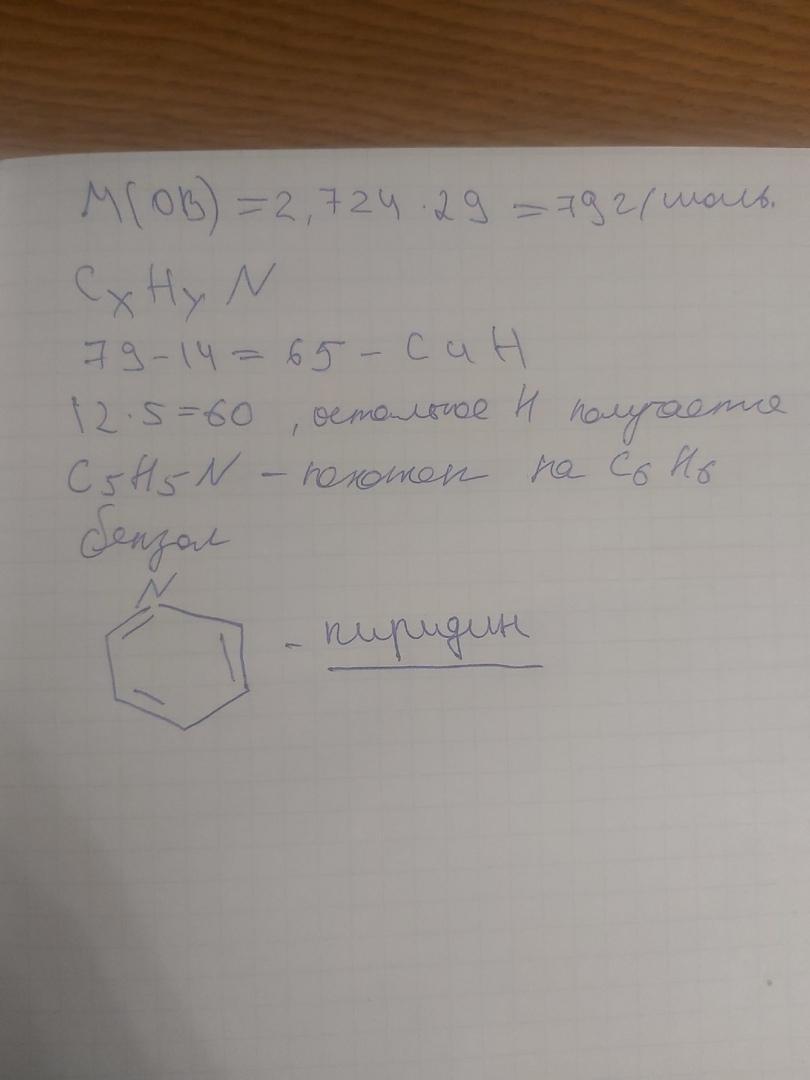 M(ОВ) = 2,724 · 29 = 79 г/моль.
CxHyN
79-14 = 65 - C и H
12·5=60 , остальное H получается
C5H5N - похожен на C6H6
бензол
N
- пиридин